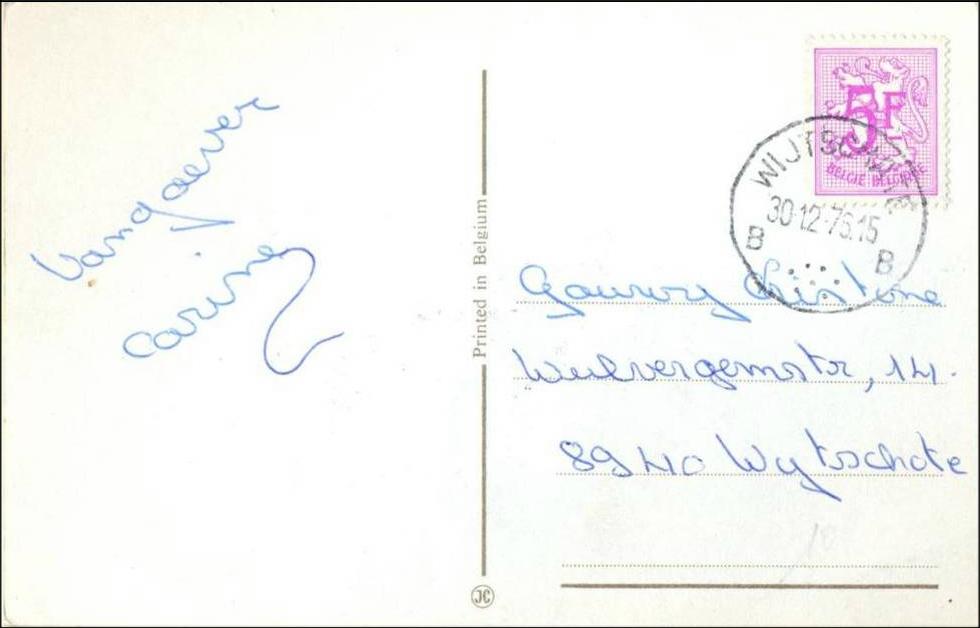 Vangaever
Carine
Printed in Belgium
JC
5F
BELGIË BELGIQUE
WIJTSCHATE
30-12-76.15
B B
Gouwy Cristine
Wulvergemstr, 14.
8940 Wytschate